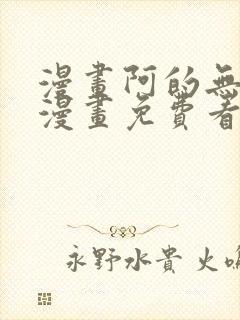 漫畫阿的無
漫畫免費看
永野水貴 火鳴